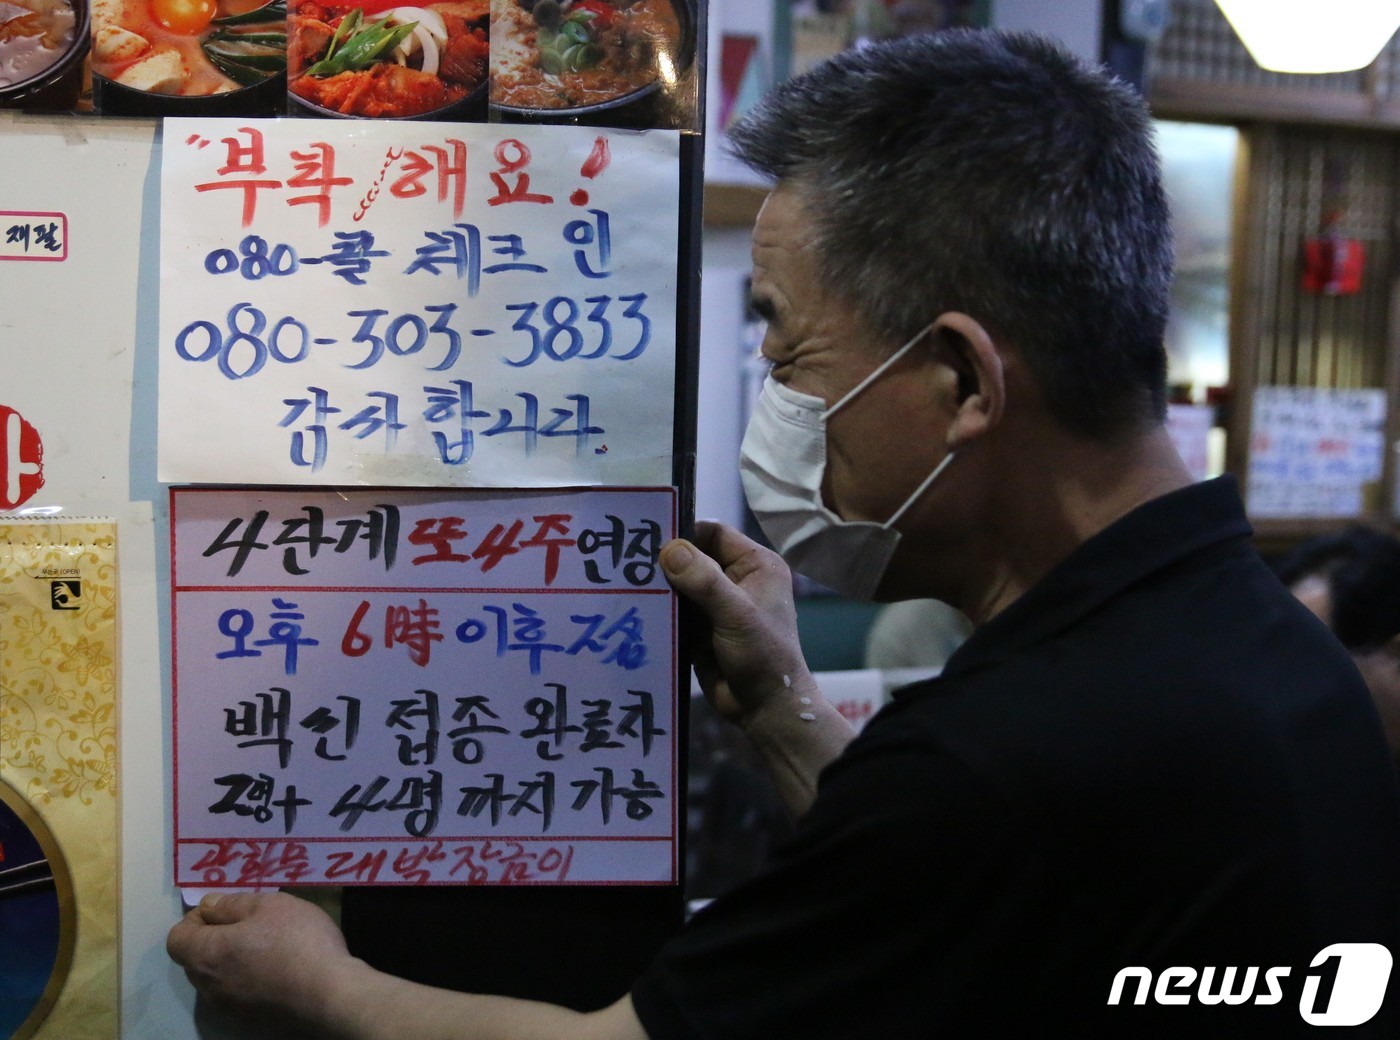 "부착/해요!
080-콜 체크인
080-303-3833
감사합니다.
재팔
4단계 또 4주 연장
오후 6時 이후 2名
백신 접종 완료자
2명+4명까지 가능
광화문 대박 장금이
(OPEN)
news1